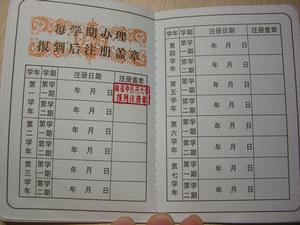 每学期办理
报到后注册盖章
学年 学期 注册日期 注册盖章
第一学年 第一学期 年 月 日
第二学期 年 月 日
第二学年 第一学期 年 月 日
第二学期 年 月 日
第三学年 第一学期 年 月 日
第二学期 年 月 日
学年 学期 注册日期 注册盖章
第四学年 第一学期 年 月 日
第二学期 年 月 日
第五学年 第一学期 年 月 日
第二学期 年 月 日
第六学年 第一学期 年 月 日
第二学期 年 月 日
第七学年 第一学期 年 月 日
第二学期 年 月 日